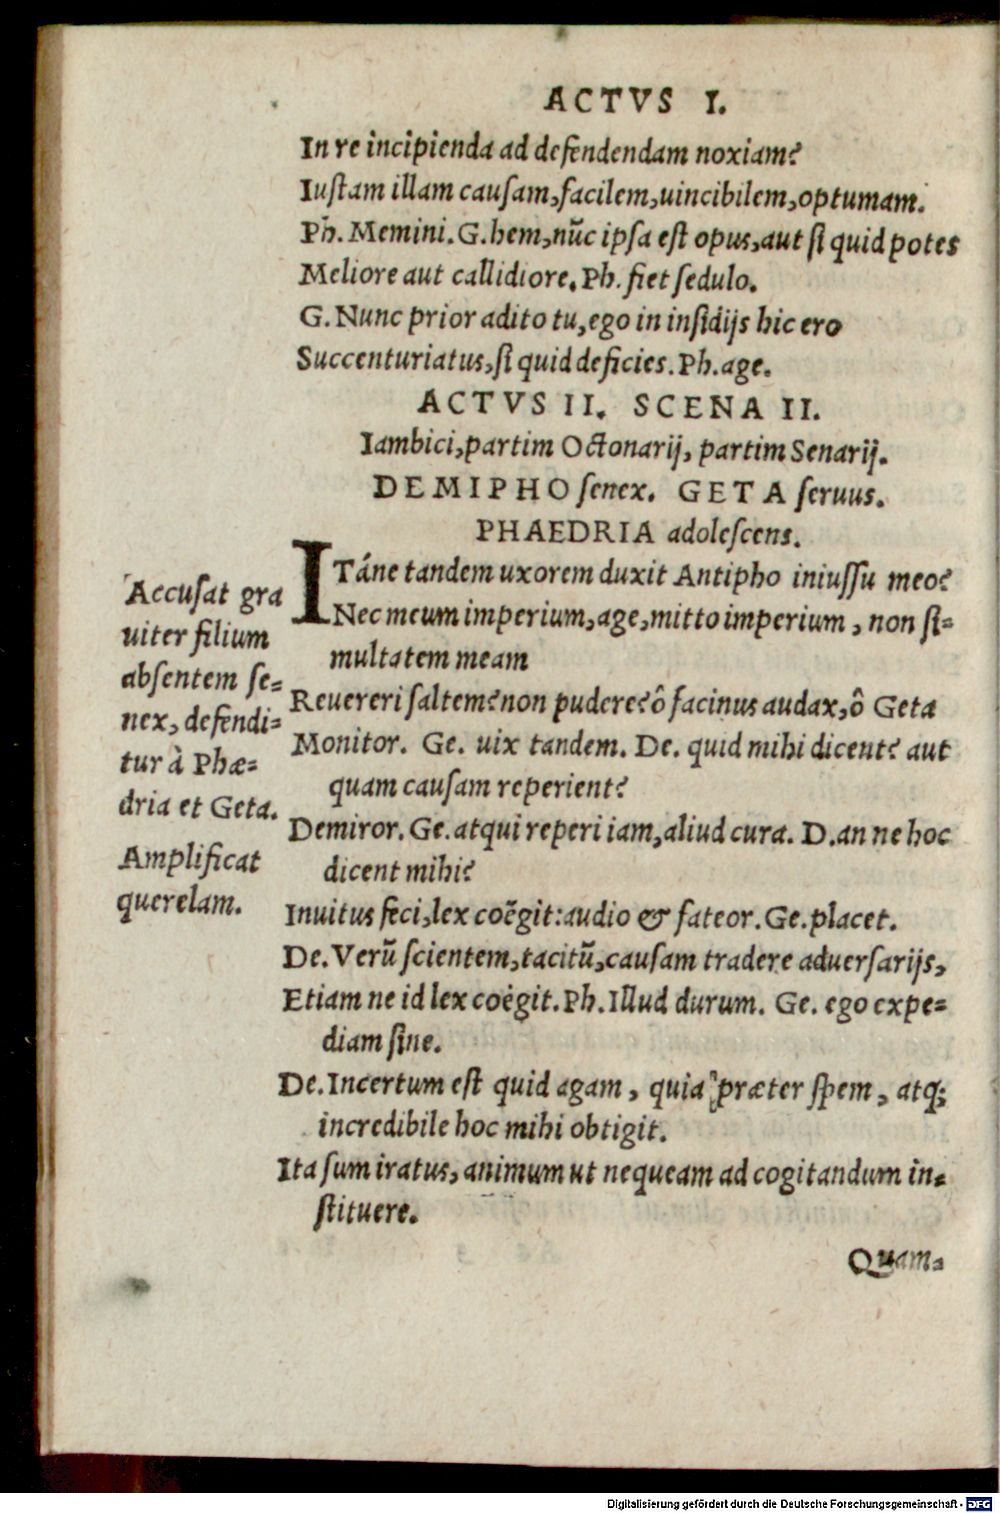 ACTVS I.
In re incipienda ad defendendam noxiam?
Iustam illam causam, facilem, uincibilem, optumam.
Ph. Memini. G. hem, nũc ipsa est opus, aut si quid potes
Meliore aut callidiore. Ph. fiet sedulo.
G. Nunc prior adito tu, ego in insidijs hic ero
Succenturiatus, si quid deficies. Ph. age.
ACTVS II. SCENA II.
Iambici, partim Octonarij, partim Senarij.
DEMIPHO senex. GETA seruus.
PHAEDRIA adolescens.
ITáne tandem uxorem duxit Antipho iniussu meo?
Nec meum imperium, age, mitto imperium, non si-
multatem meam
Reuereri saltem? non pudere? ô facinus audax, ô Geta
Monitor. Ge. uix tandem. De. quid mihi dicent? aut
quam causam reperient?
Demiror. Ge. atqui reperi iam, aliud cura. D. an ne hoc
dicent mihi?
Inuitus feci, lex coëgit: audio & fateor. Ge. placet.
De. Verũ scientem, tacitũ, causam tradere aduersarijs,
Etiam ne id lex coëgit. Ph. Illud durum. Ge. ego expe-
diam sine.
De. Incertum est quid agam, quia præter spem, atq;
incredibile hoc mihi obtigit.
Ita sum iratus, animum ut nequeam ad cogitandum in-
stituere.
Quam-
Accusat gra
uiter filium
absentem se-
nex, defendi-
tur à Phæ-
dria et Geta.
Amplificat
querelam.
Digitalisierung gefördert durch die Deutsche Forschungsgemeinschaft - DFG